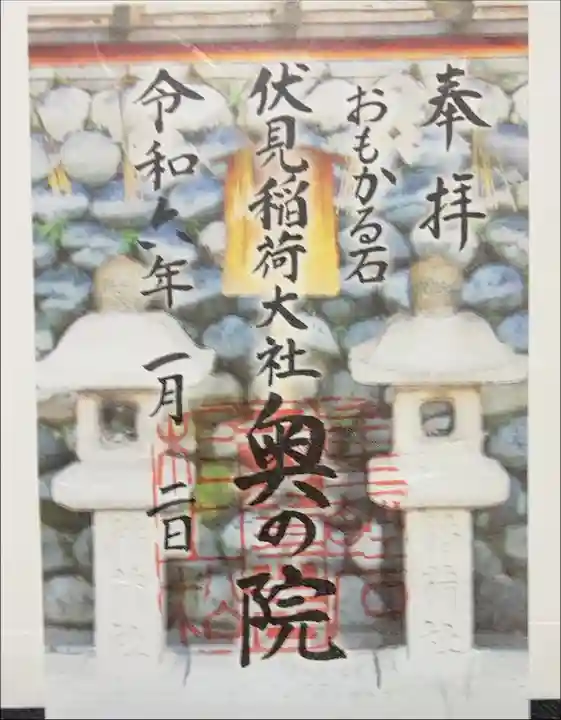 奉拝
おもかる石
伏見稲荷大社奥の院
令和六年 一月 二日